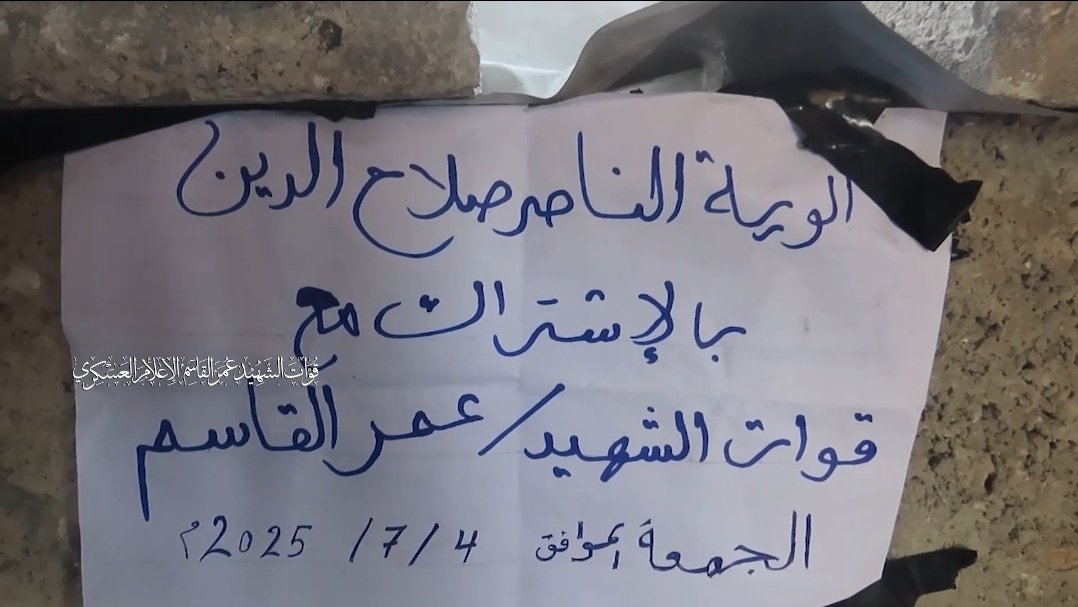 الوية الناصر صلاح الدين
بالإشتراك مع
قوات الشهيد عمر القاسم الإعلام العسكري
قوات الشهيد/عمر القاسم
الجمعة الموافق 4 /7 /2025م